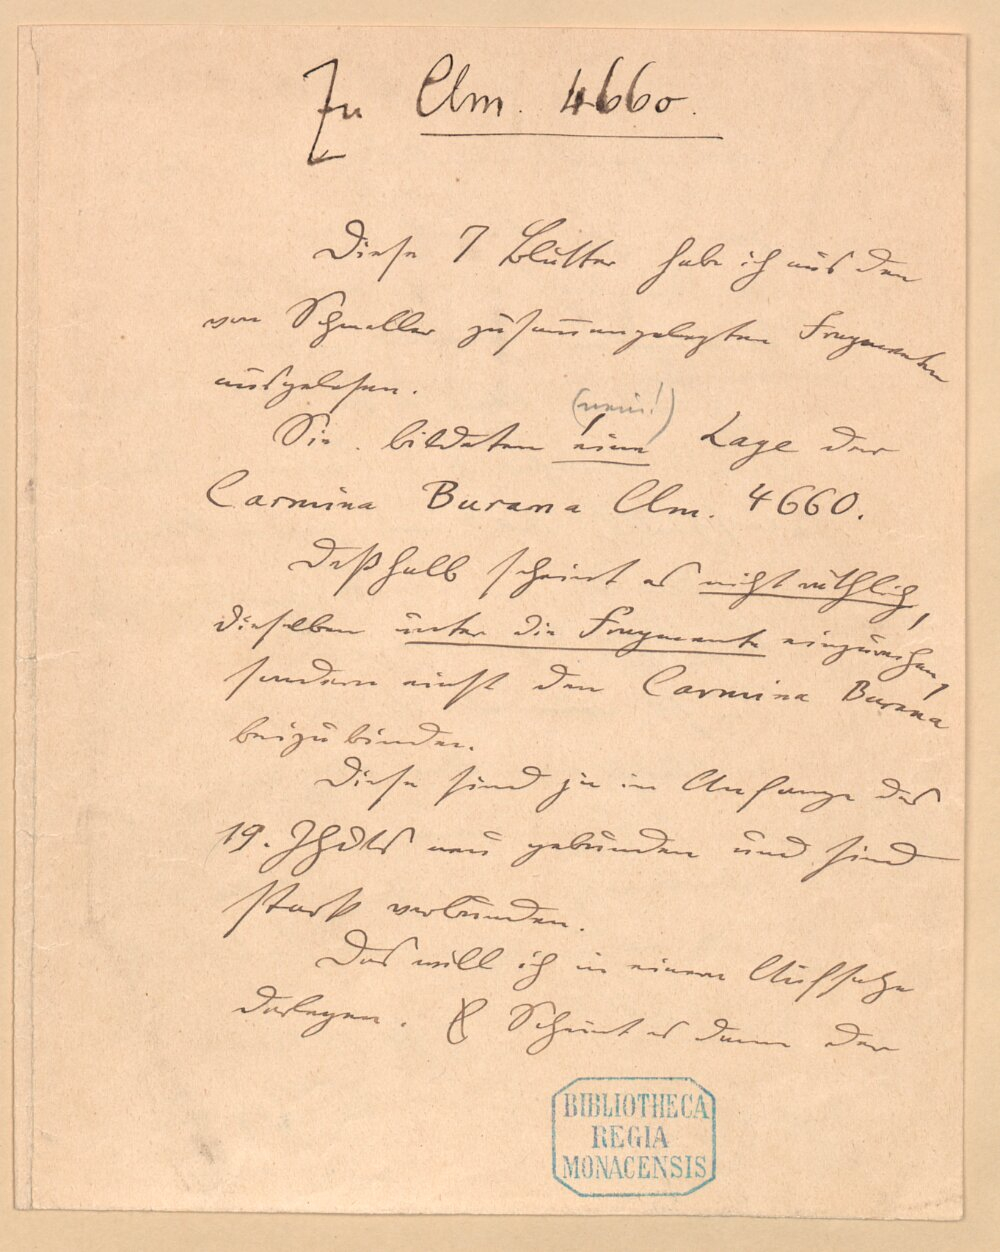 Zu Clm. 4660.
Diese 7 Blätter habe ich aus den
von Schmeller zusam̅engelegten Fragmenten
ausgelesen.
(nein!)
Sie bildeten eine Lage der
Carmina Burana Clm. 4660.
Deßhalb scheint es nicht räthlich,
dieselben unter die Fragmente einzureihen,
sondern einst den Carmina Burana
beizubinden.
Diese sind ja im Anfange des
19. Jhdts neu gebunden und sind
stark verbunden.
Das will ich in einem Aufsatze
darlegen. Scheint es dann der
BIBLIOTHECA
REGIA
MONACENSIS